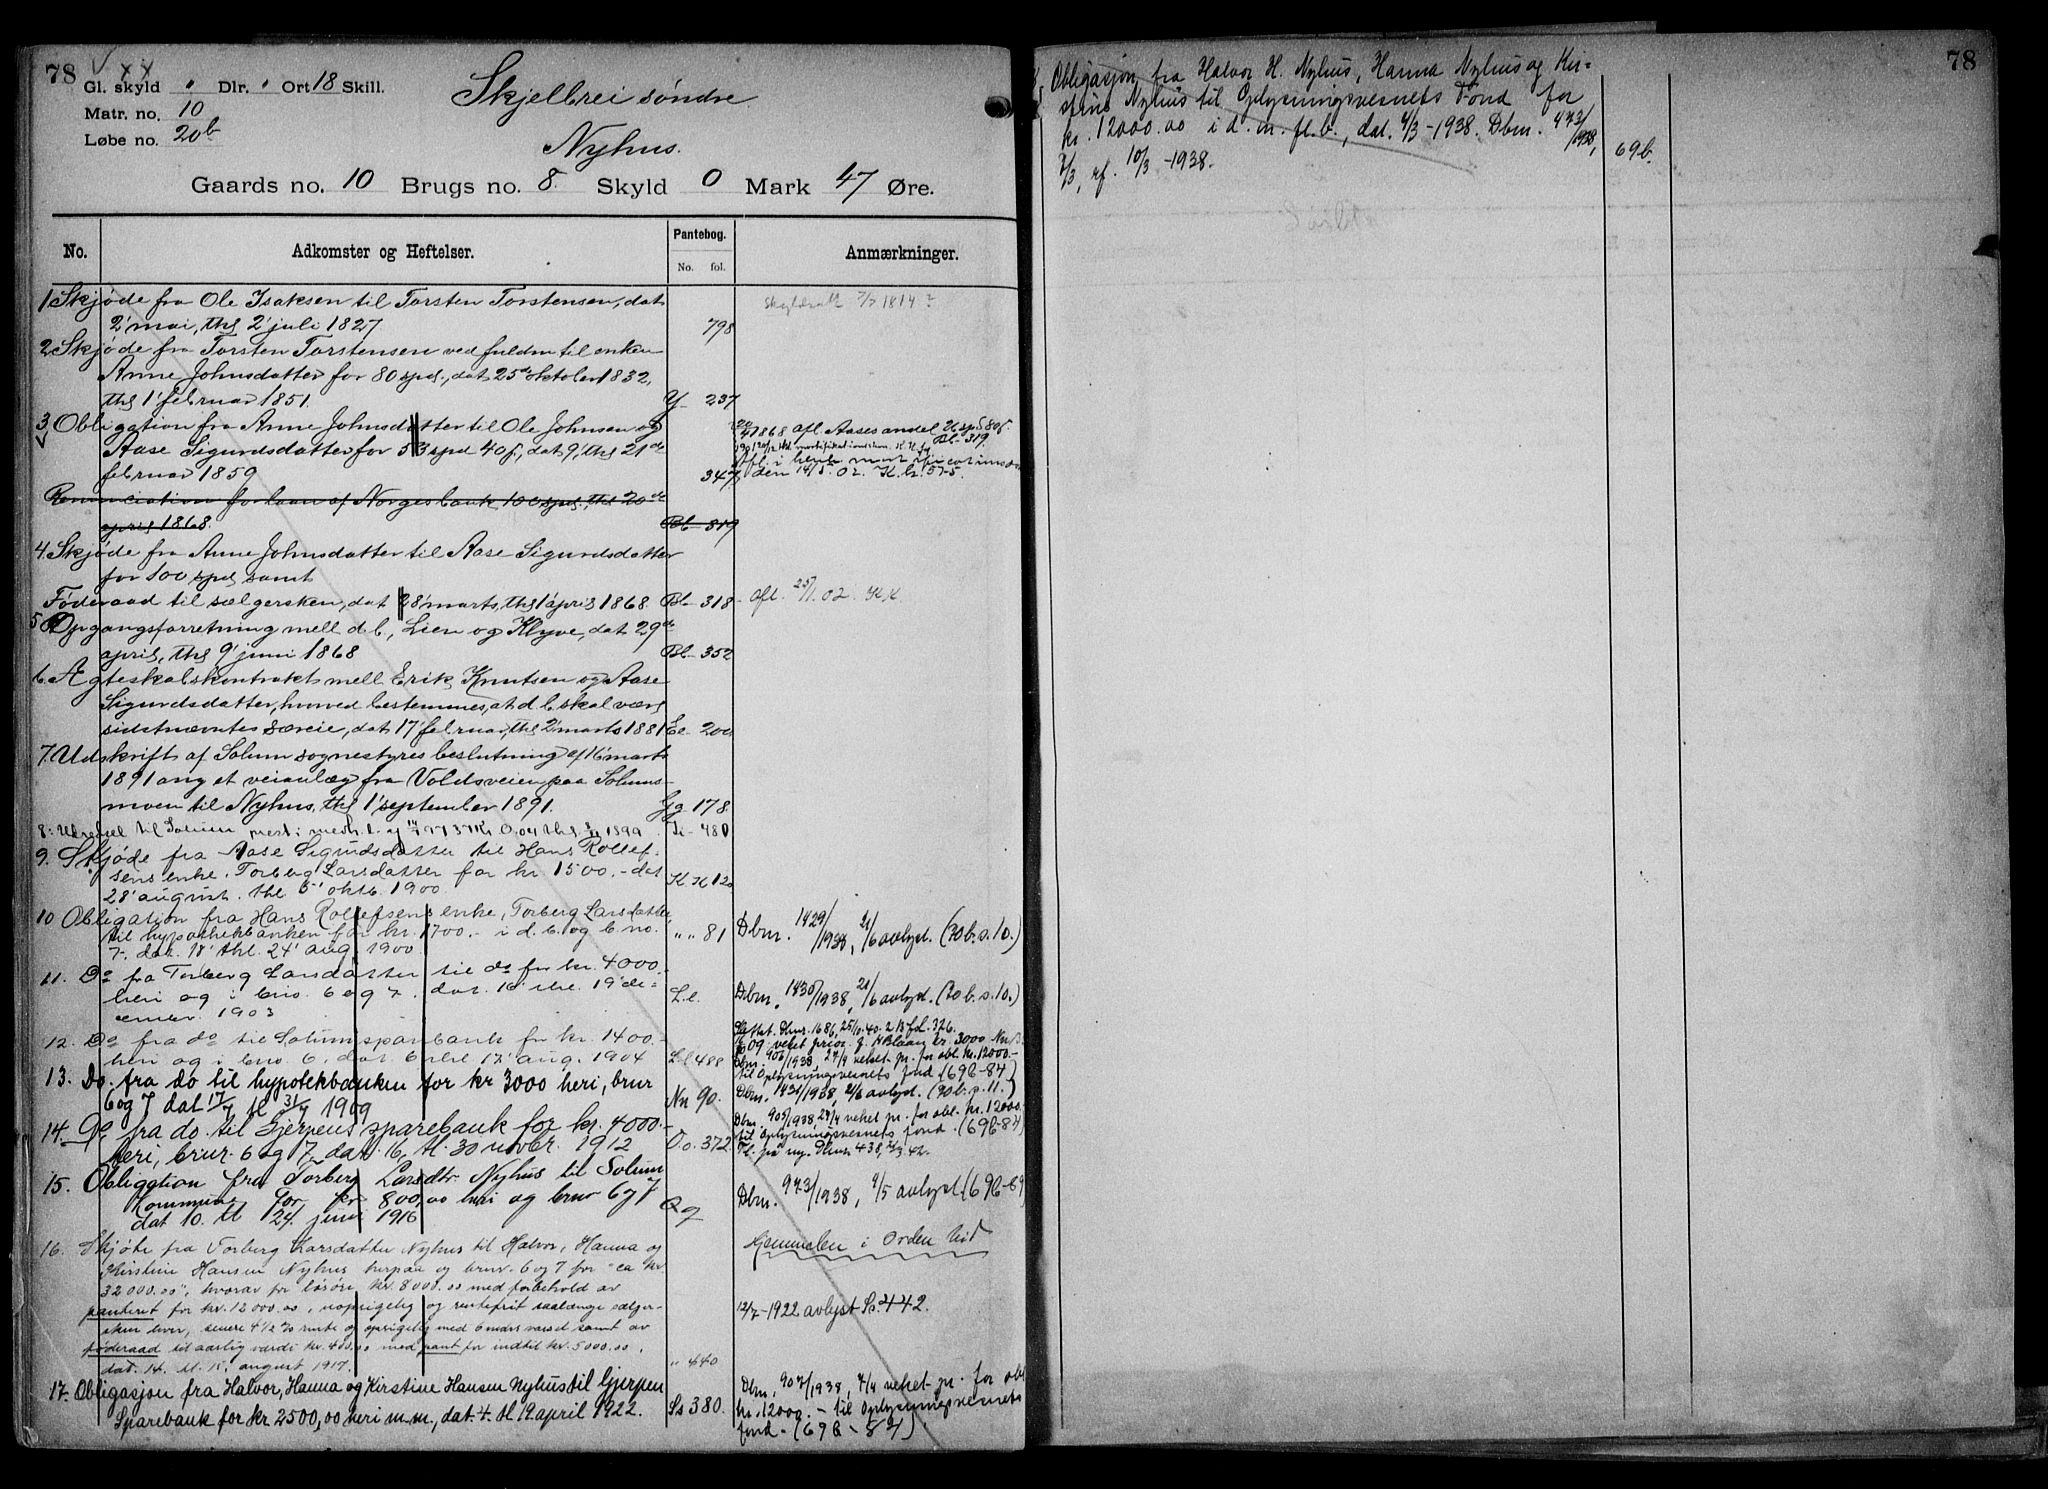 78
Gl. skyld " Dlr. " Ort 18 Skill.
Matr. no. 10
Løbe no. 20b
Skjelbrei søndre
Nyhus.
Gaards no. 10 Brugs no. 8. Skyld 0 Mark 47 Øre.
No. Adkomster og Heftelser. Pantebog. No. fol. Anmærkninger.
1. Skjøde fra Ole Isaksen til Torsten Torstensen, dat
2' mai, thl 2' juli 1827 798
2. Skjøde fra Torsten Torstensen ved fuldm til enken
Anne Johnsdatter for 80 spd., dat 25de oktober 1832,
thl 1' februar 1851. Y 237
3 Obligation fra Anne Johnsdatter til Ole Johnsen og
Aase Sigurdsdatter for 53 spd 40 s., dat 9', thl 21de
februar 1859 347
20/4 1868 afl. Aases andel 26 sp. 80 s. Bb-319.
den 14/5.02. K.k. 575.
Renunciation for laan af Norges bank 100 spd., thl 20de
april 1868. Bb-319
4. Skjøde fra Anne Johnsdatter til Aase Sigurdsdatter
for 100 spd samt
Føderaad til sælgersken, dat 28' marts, thl 1' april 1868 Bb-318 afl. 25/1.02. KK
5 Opgangsforretning mell d. b., Lien og Klyve, dat 29de
april, thl 9' juni 1868 Bb-352
6. Ægteskabskontrakt mell Erik Knutsen og Aase
Sigurdsdatter, hvorved bestemmes, at d. b. skal være
sidstnævntes særeie, dat 17' februar, thl 2' marts 1881 Ee-200
7. Udskrift af Solum sognestyres beslutning af 16' marts
1891 ang et veianlæg fra Voldsveien paa Solums-
moen til Nyhus, thl 1' september 1891. Gg 178
1899 Ii-480
9. Skjøde fra Aase Sigurdsdatter til Hans Rollef-
sens enke, Torberg Larsdatter for kr 1500,- dat
28' august, thl 5' oktb. 1900. K.K 120
10 Obligation fra Hans Rollefsens enke, Torberg Larsdatter,
til hypothekbanken for kr. 1700.- i d. b. og b no.
7, dat. 18' thl. 24' aug. 1900 " " 81 Dbm. 1429/1938, 21/6 avlyst. (70b. s. 10.)
11. Do fra Torberg Larsdatter til do for kr. 4000.-
heri og i bno. 6 og 7, dat. 16' thl. 19' de-
cember 1903 L.l. Dbm. 1430/1938, 21/6 avlyst. (70 b. s. 10.)
12. Do fra do til Solum sparebank for kr. 1400.-
heri og i bno. 6, dat. 6' thl 17' aug. 1904 L.l 488
Slettet. Dbnr. 1686, 25/10.40. 2 B fol. 326.
Dbm. 906/1938, 27/4 veket pr. for obl. kr. 12000.-
til Oplysningsvesnets fond (69b-84)
13. Do. fra do til hypotekbanken for kr 3000 heri, brur
6 og 7 dat 17/7 tl 31/7 1909 Nn 90. Dbm. 1431/1938, 21/6 avlyst. (70b. s. 11.)
14. Do fra do. til Gjerpens sparebank for kr. 4000.-
heri, brur. 6 og 7, dat. 16, tl. 30 novbr. 1912 Oo. 372
Dbm. 905/1938, 27/4 veket pr. for obl. kr. 12000.-
til Oplysningsvesnets fond. (69b-84)
15. Obligation fra Torberg Larsdtr Nyhus til Solum
Kommune for kr 800,00 heri og brur 6 og 7
dat 10. tl 24. juni 1916 Qq Dbm. 973/1938, 4/5 avlyst (69b-89)
16. Skjøte fra Torberg Larsdatter Nyhus til Halvor, Hanna og
Kirstine Hansen Nyhus herpaa og brur. 6 og 7 for "ca kr
32 000.00", hvorav for løsøre kr. 8000.00 med forbehold av
panteret for kr. 12 000.00, uopsigelig og rentefrit saalænge sælger-
sken lever, senere 4 1/2 % rente og opsigelig med 6 mdrs varsel samt av
føderaad til aarlig værdi kr. 400.00 med pant for indtil kr. 5000.00,
dat. 14. tl. 15. august 1917. " 440
Hjemmelen i Orden hid
12/7-1922 avlyst Ss. 442.
17. Obligasjon fra Halvor, Hanna og Kirstine Hansen Nyhus til Gjerpen
Sparebank for kr 2500,00 heri m.m., dat. 4. tl 19 april 1922. Ss 380.
Dbm. 907/1938, 7/4 veket pr. for obl
kr. 12000.- til Oplysningsvesnets
fond. (69b-84)
78
Obligasjon fra Halvor H. Nyhus, Hanna Nyhus og Kir-
stine Nyhus til Oplysningsvesnets Fond for
kr. 12000.00 i d. m. fl. b., dat. 4/3-1938. Dbm. 473/1938,
7/3, rf. 10/3-1938. 69b.